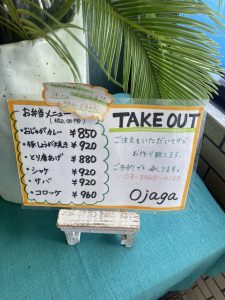 お弁当メニュー
(税込価格)
・おじゃがカレー ¥850
・豚しょうが焼き ¥920
・とり唐あげ ¥880
・シャケ ¥920
・サバ ¥920
・コロッケ ¥960
TAKE OUT
ご注文をいただいてから
お作り致します。
ご予約でも承ります。
Ojaga